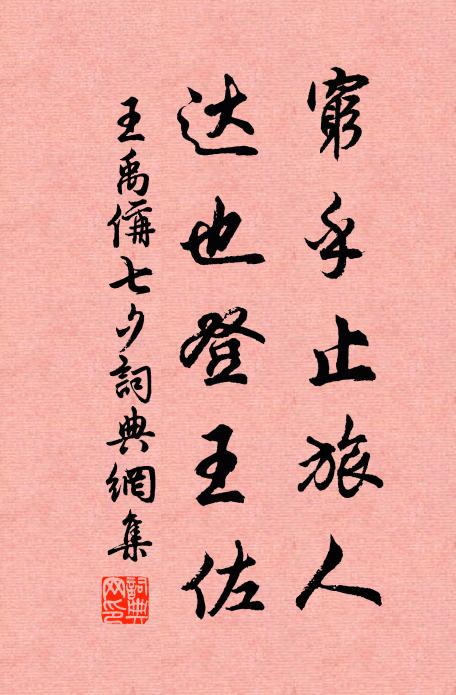 窮乎止旅人
达也登王佐
王禹偁七夕詞典網集
詞典網印